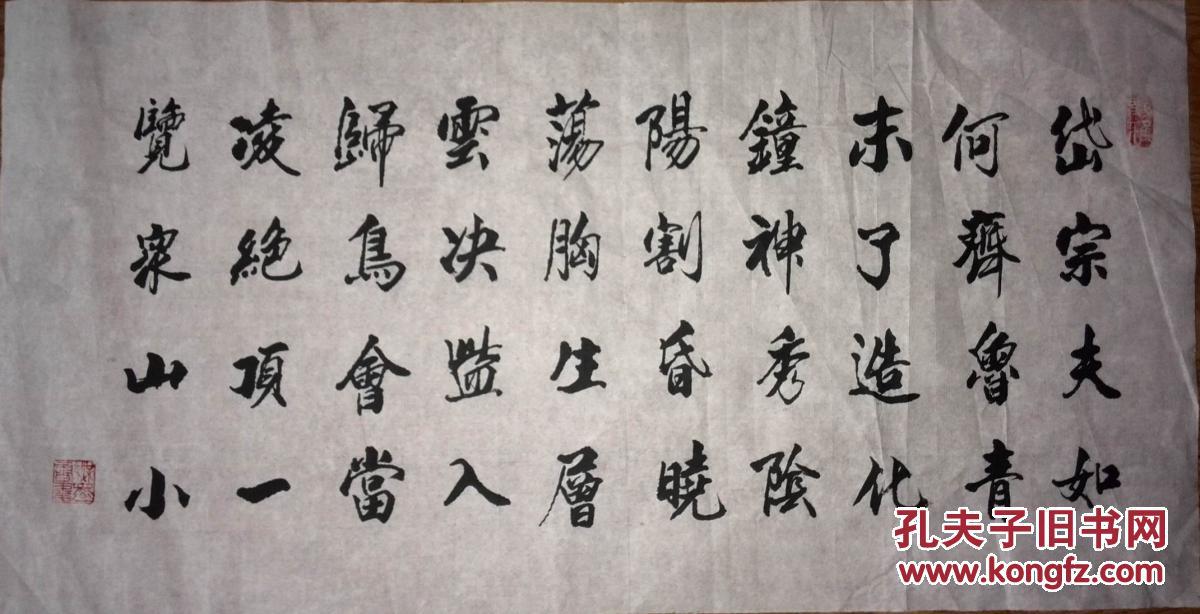 岱宗夫如
何齊魯青
未了造化
鐘神秀陰
陽割昏曉
蕩胸生層
雲决入
歸鳥會當
凌絶頂一
覽眾山小
孔夫子旧书网
www.kongfz.com